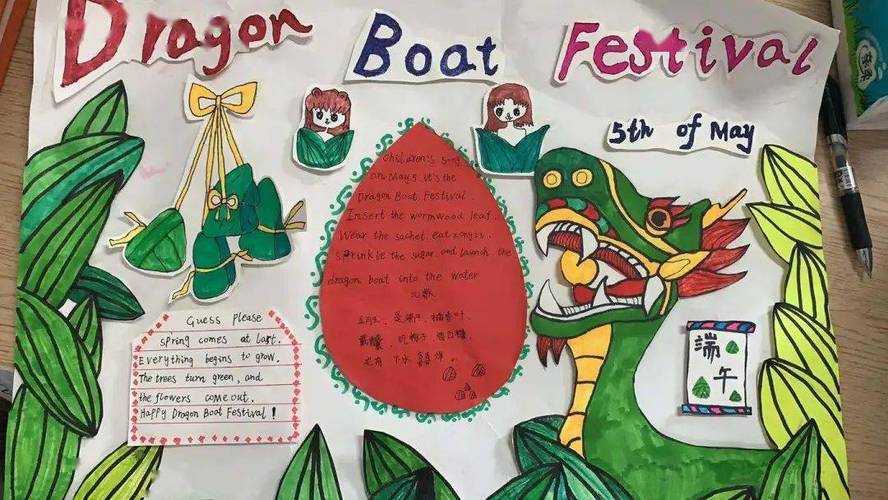 Dragon Boat Festival
5th of May
children's song
on May 5 it's the
Dragon Boat Festival.
Insert the wormwood leaf.
Wear the sachet. eat zongzi.
sprinkle the sugar, and launch the
dragon boat into the water
儿歌
五月五,是端阳,插香叶.
戴香
下水 喜洋洋。
Guess please
spring comes at last.
Everything begins to grow.
The trees turn green, and
the flowers come out.
Happy Dragon Boat Festival!
端
午